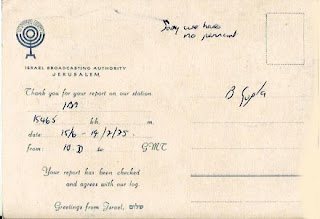 Sorry we have
no pennant
ISRAEL BROADCASTING AUTHORITY
JERUSALEM
B Gupta
Thank you for your report on our station
IBA
15465 kh. m.
date: 15/6 - 19/7/75.
from: to GMT
Your report has been checked
and agrees with our log.
Greetings from Israel, שלום